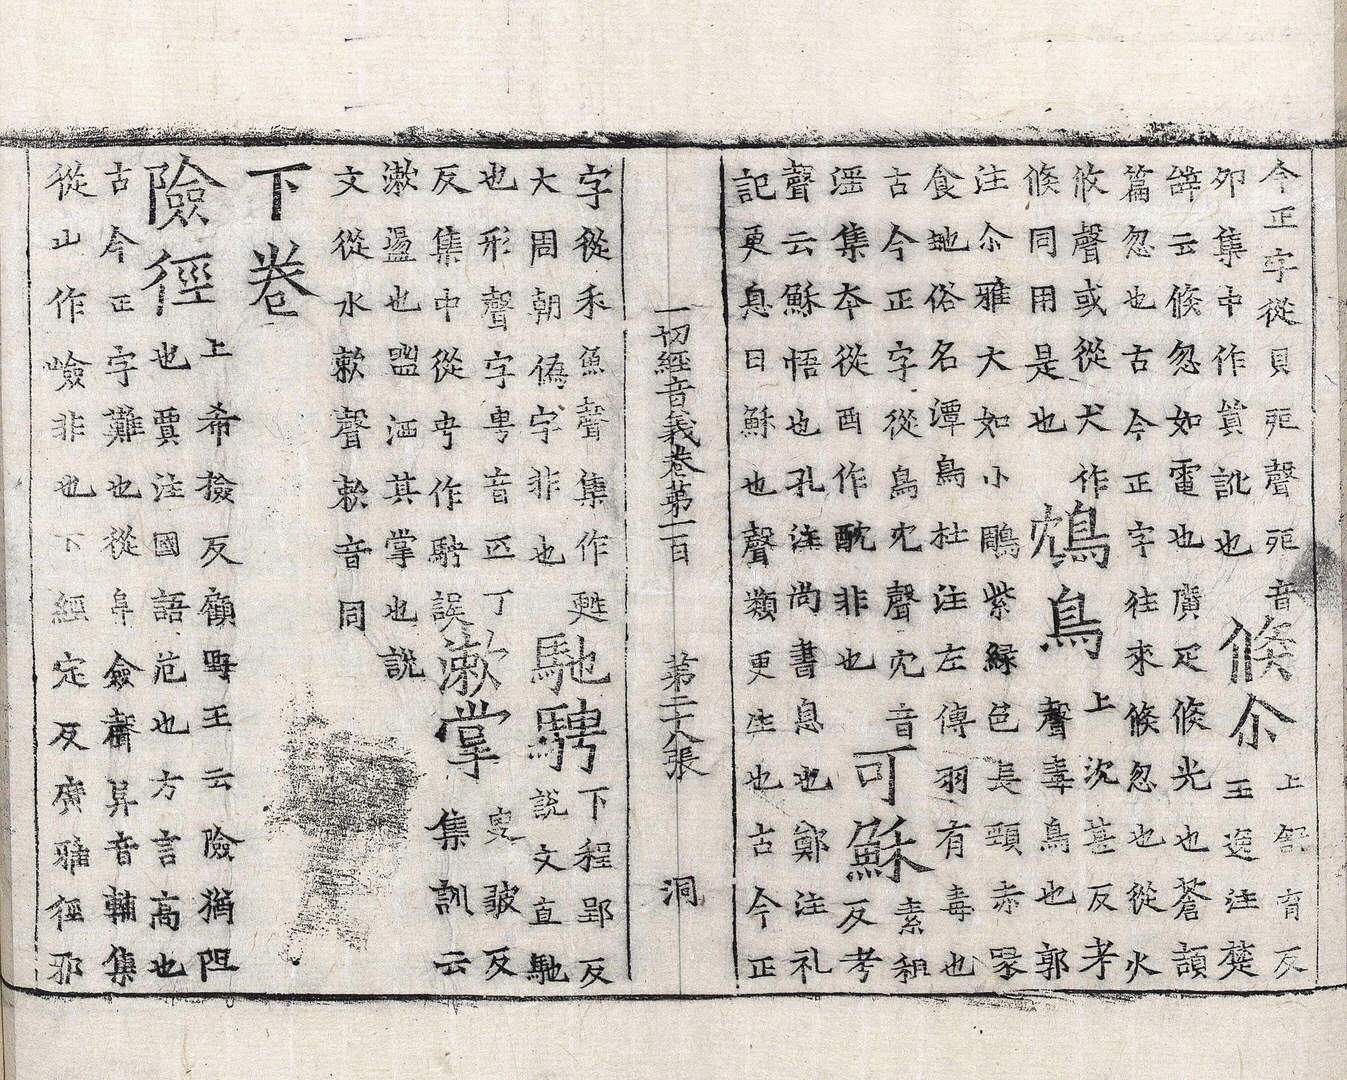 今正字從貝戼聲戼音
夘集中作貿訛也
倏尒
上舒育反
王逸注楚
辭云倏忽如電也廣疋倏光也蒼頡
篇忽也古今正字往來倏忽也從火
攸聲或從犬作
倏同用是也
鴆鳥
上沈甚反考
聲毒鳥也郭
注尒雅大如小鵰紫緑色長頸赤喙
食虵俗名潭鳥杜注左傳羽有毒也
古今正字從鳥冘聲冘音
滛集本從酉作酖非也
可穌
素租
反考
聲云穌悟也孔注尚書息也鄭注礼
記更息曰穌也聲類更生也古今正
一切經音義卷第一百 第二十八張 洞
字從禾魚聲集作甦
大周朝偽字非也
馳騁
下程郢反
說文直馳
也形聲字甹音匹丁
反集中從甹作騁誤
漱掌
叟皺反
集訓云
漱盪也盥洒其掌也說
文從水欶聲欶音同
下卷
險徑
上希撿反顧野王云險猶阻
也賈注國語危也方言高也
古今正字難也從阜僉聲昇音輔集
從山作嶮非也下經定反廣雅徑邪